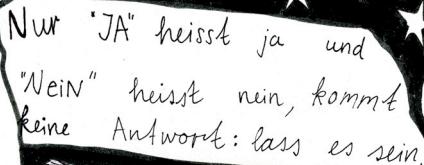 Nur "JA" heisst ja und
"NeiN" heisst nein, kommt
keine Antwort: lass es sein